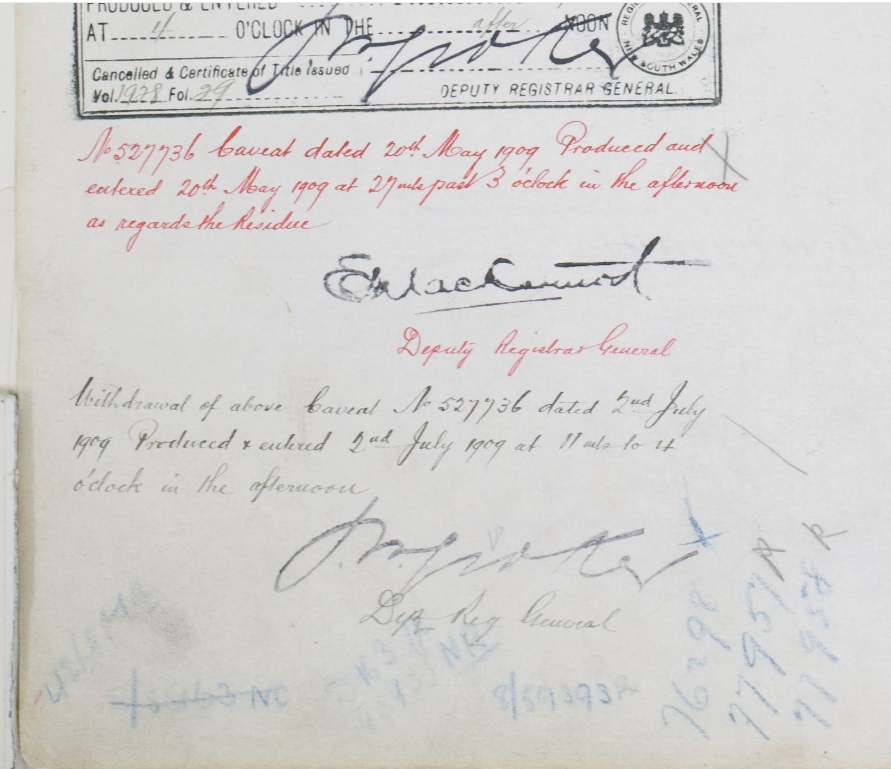 PRODUCED & ENTERED
AT 4 O'CLOCK IN THE after NOON
REGISTRAR GENERAL NEW SOUTH WALES
Cancelled & Certificate of Title Issued
Vol. 1978 Fol. 29
DEPUTY REGISTRAR GENERAL.
No 527736 Caveat dated 20th May 1909 Produced and
entered 20th May 1909 at 27 mts past 3 o'clock in the afternoon
as regards the Residue
Deputy Registrar General
Withdrawal of above Caveat No 527736 dated 2nd July
1909 Produced & entered 2nd July 1909 at 11 mts to 4
o'clock in the afternoon
Dep Reg General
8/59393R
77957 R
77958 R